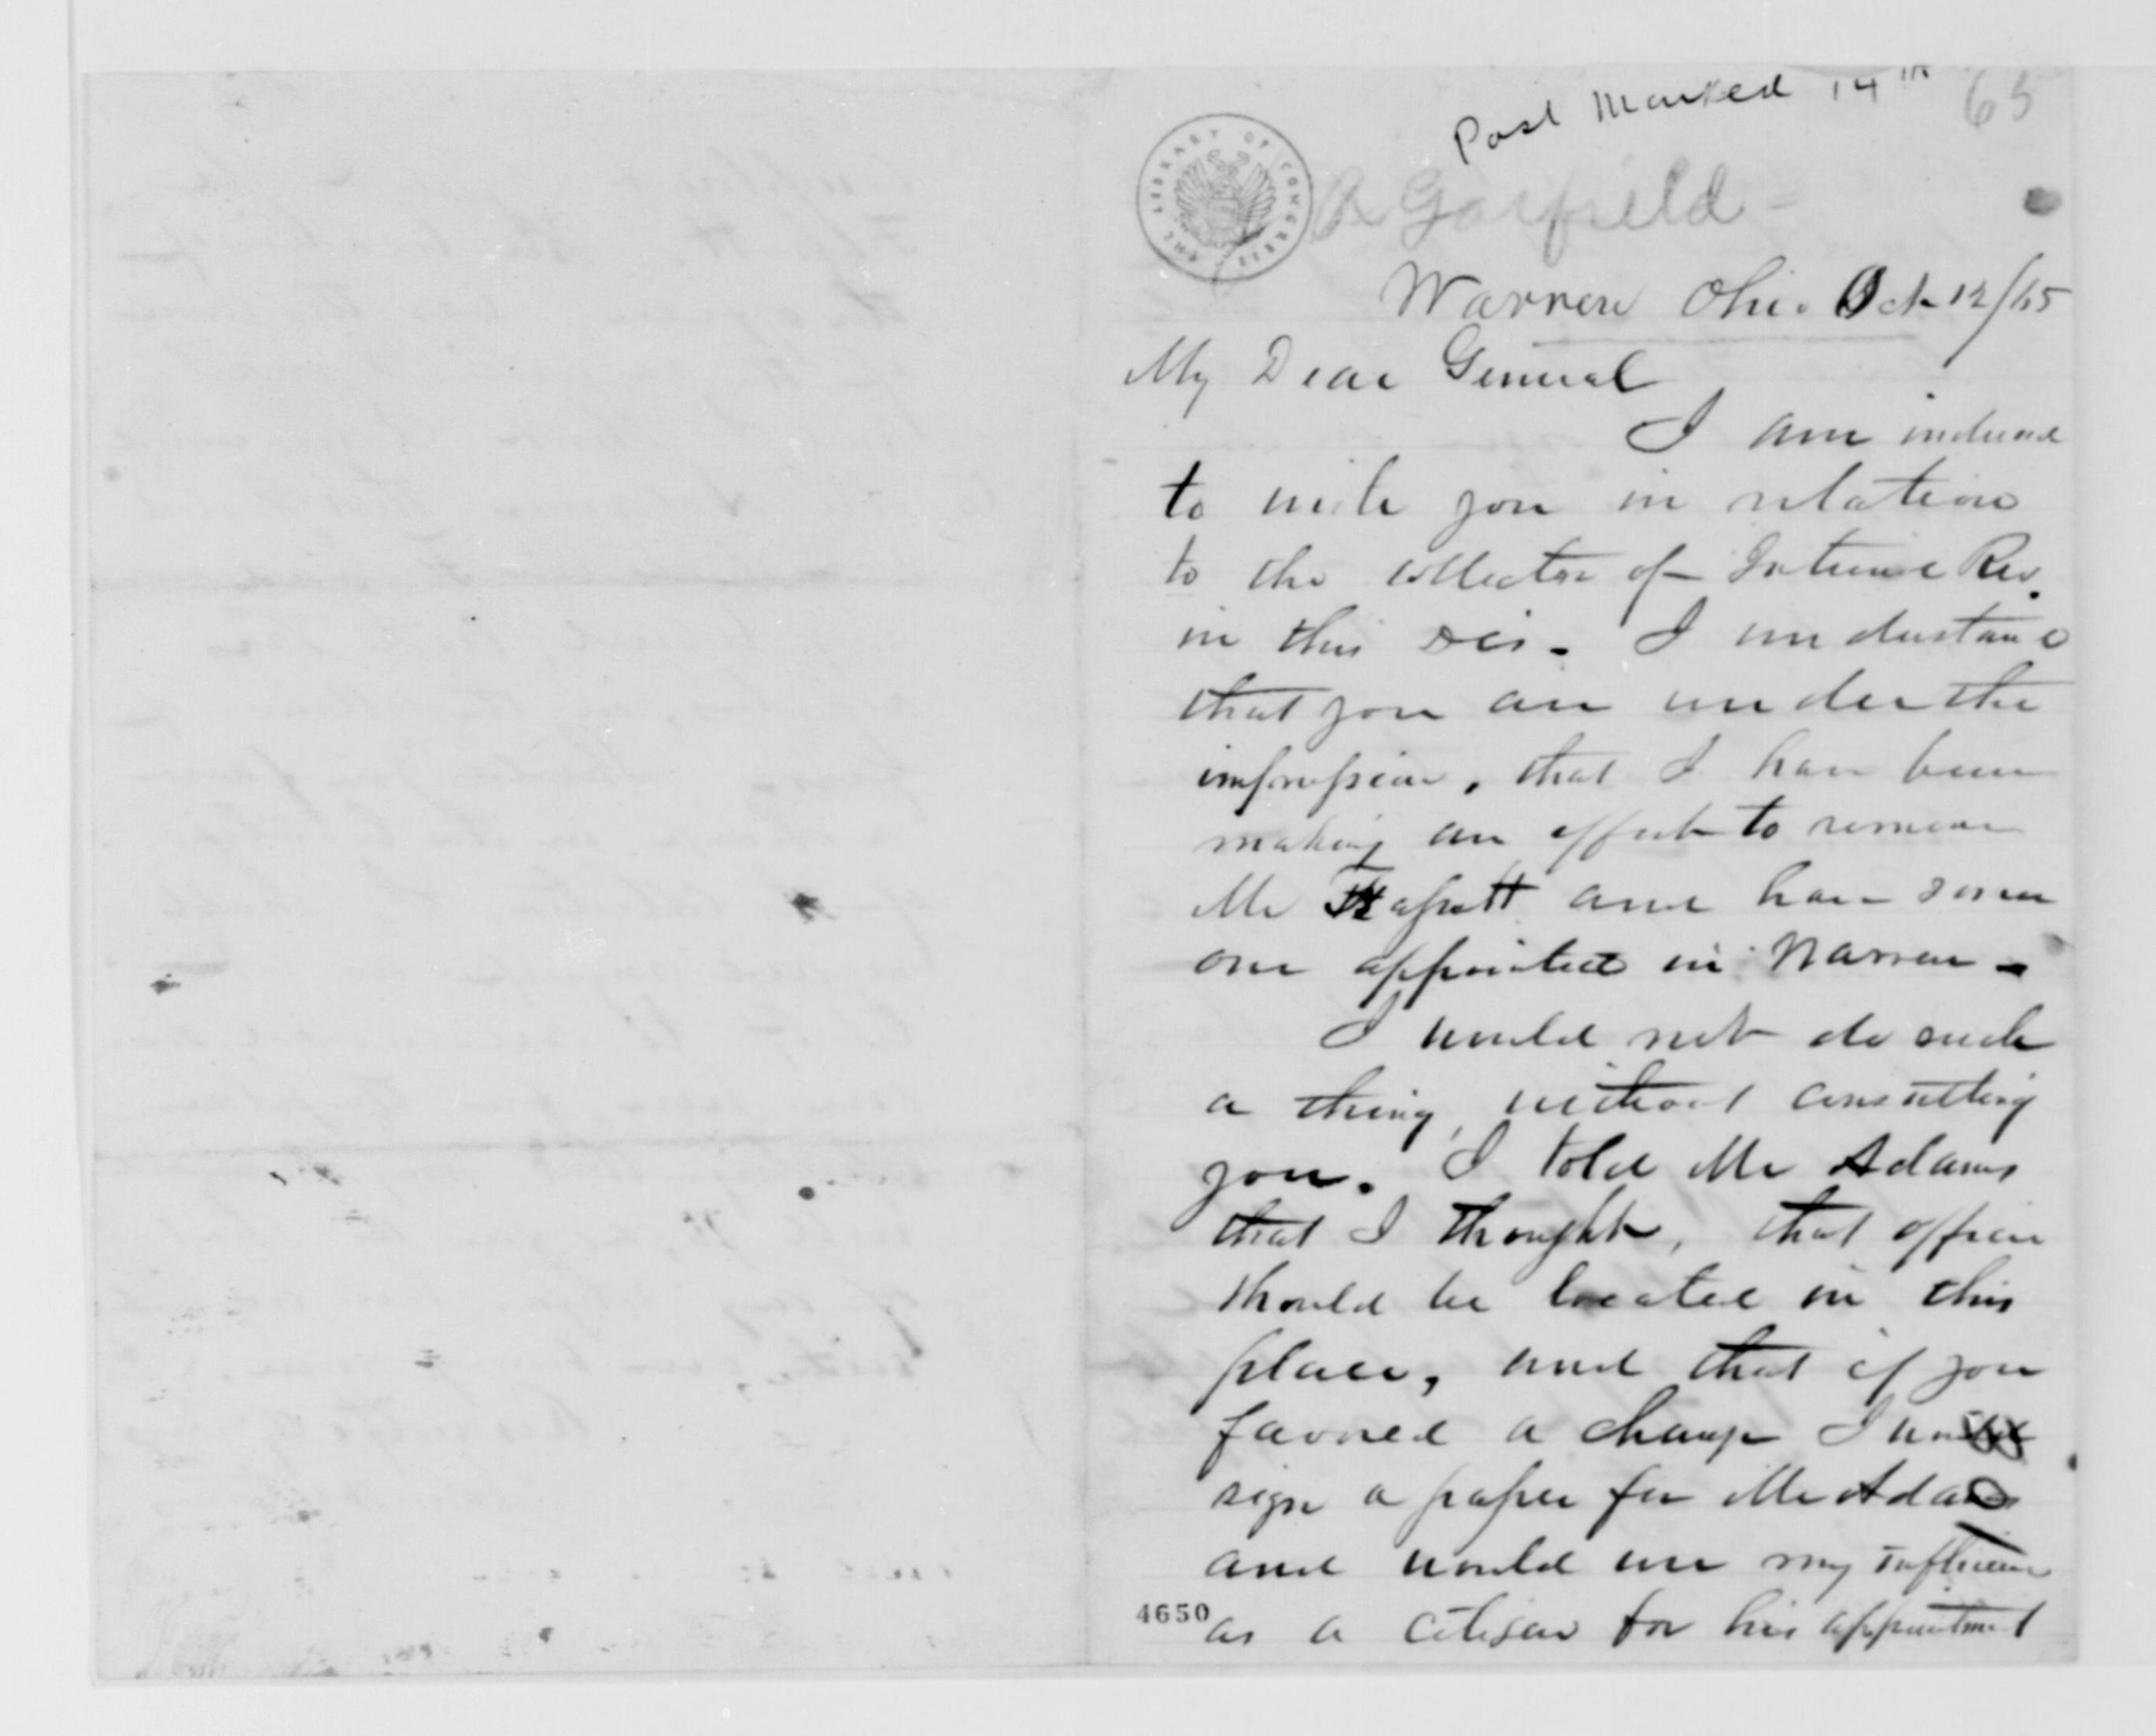 Post Marked 14th
65
Garfield -
THE LIBRARY OF CONGRESS
Warren Ohio Oct 12/65
My Dear General
I am induced
to write you in relation
to the collector of Internal Rev.
in this Dis - I understand
that you are under the
impression, that I have been
making an effort to remove
Mr and have some
one appointed in Warren -
I would not do such
a thing, without consulting
you. I told Mr Adams
that I thought, that office
should be located in this
place, and that if you
favored a change I would
sign a paper for Mr Adams
and would use my influence
4650
as a citizen for his appointment